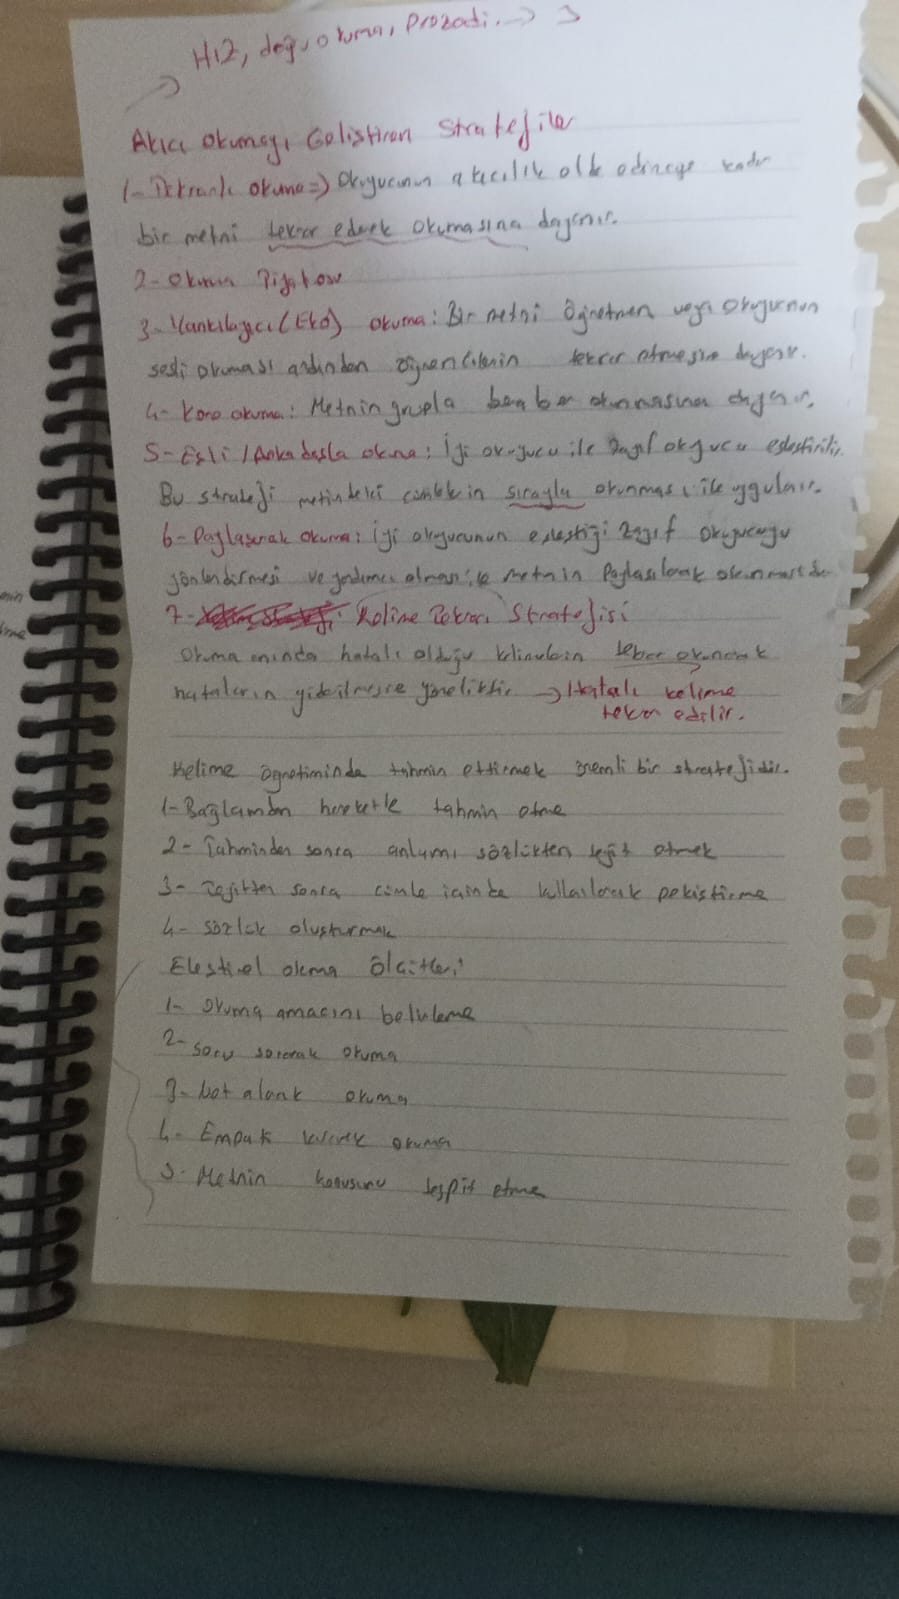 Hız, doğru okuma, Prozodi. → 3
Akıcı Okumayı Geliştiren Stratejiler
1- Tekrarlı okuma => Okuyucunun akıcılık elde edineye kadar
bir metni tekrar ederek okumasına dayanır.
2- Okuma Tiyatrosu
3- Yankılayıcı (Eko) okuma: Bir metni öğretmen veya okuyucunun
sesli okuması ardından öğrencilerin tekrar etmesine dayanır.
4- Koro okuma: Metnin grupla beraber okunmasına dayanır.
5- Eşli / Arkadaşla okuma: İyi okuyucu ile zayıf okuyucu eşleştirilir.
Bu strateji metindeki cümlelerin sırayla okunması ile uygulanır.
6- Paylaşarak okuma: İyi okuyucunun eşleştiği zayıf okuyucuyu
yönlendirmesi ve yardımcı olması ile metnin Paylaşılarak okunmasıdır
7- Kelime Tekrarı Stratejisi
Okuma anında hatalı olduğu kelimelerin tekrar okunarak
hataların giderilmesine yöneliktir → Hatalı kelime
tekrar edilir.
Kelime öğretiminde tahmin ettirmek önemli bir stratejidir.
1- Bağlamdan hareketle tahmin etme
2- Tahminden sonra anlamı sözlükten teyit etmek
3- Teyitten sonra cümle içinde kullanılarak pekiştirme
4- Sözlük oluşturmak
Eleştirel okuma ölçütleri
1- Okuma amacını belirleme
2- Soru sorarak okuma
3- Not alarak okuma
4- Empati kurarak okuma
5- Metnin konusunu tespit etme